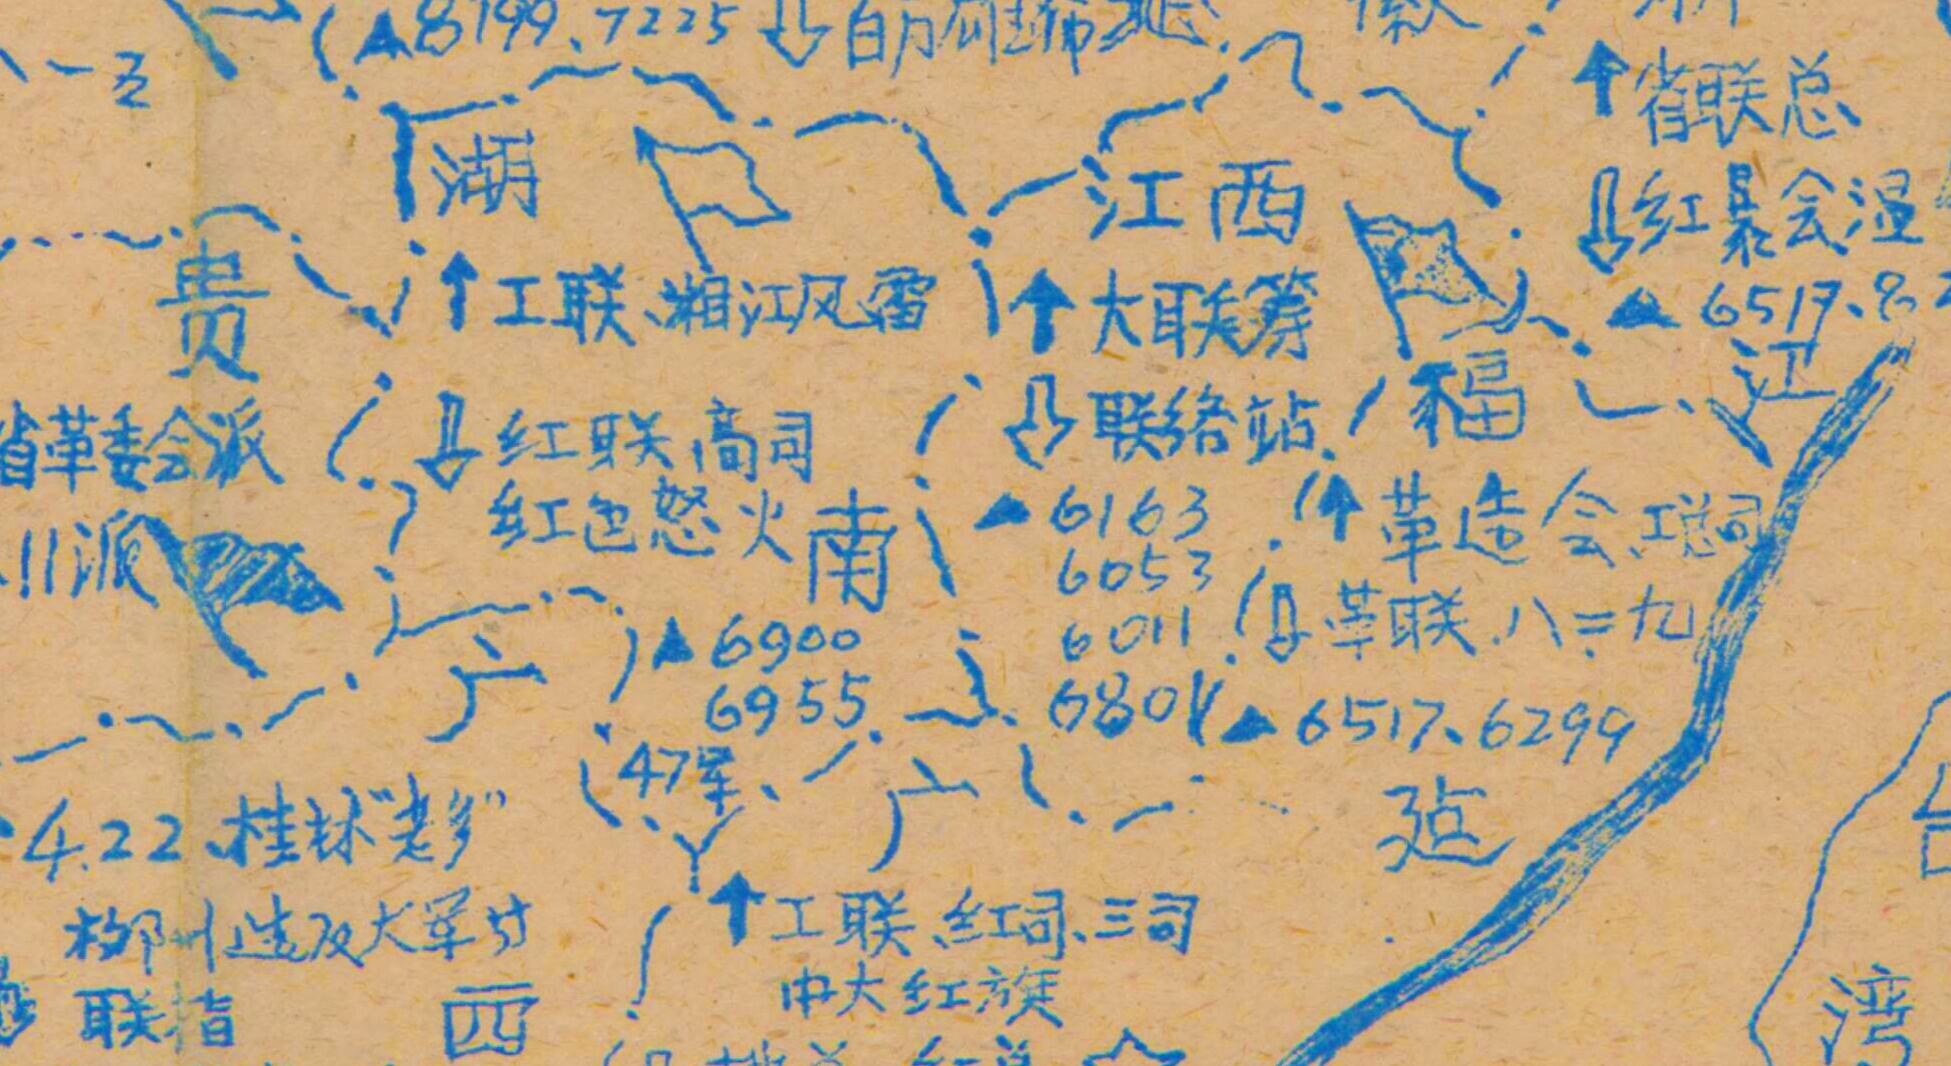 ▲8199、7225
五
湖
江西
省联总
红暴会温
▲ 6517、8
贵
↑工联、湘江风雷
↑大联筹
江
省革委会派
红联、高司
红色怒火
联络站
福
川派
南
▲ 6163
6053
6011
↑革造会、工总司
革联、八二九
▲ 6900
6955
▲ 6517、6299
广
47军
广
4.22、桂林"老多"
柳州造反大军
联指
西
↑工联、红司、三司
中大红旗
台
湾